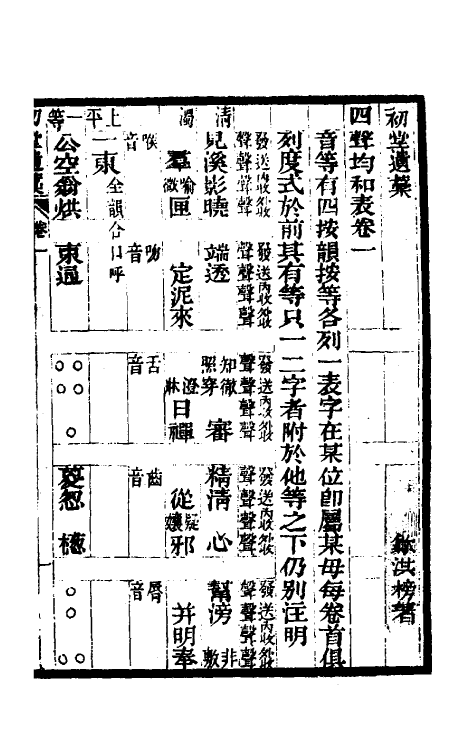 初堂遺藁
四聲均和表卷一
洪榜著
音等有四按韻按等各列一表字在某位卽屬某母每卷首俱
刻度式於前其有等只一二字者附於他等之下仍別注明
發聲 送聲 內收聲 外收聲 發聲 送聲 內收聲 外收聲 發聲 送聲 內收聲 外收聲 發聲 送聲 內收聲 外收聲 發聲 送聲 內收聲 外收聲
清 見溪影曉 端透 知徹照穿審 精清心 幫滂非敷
濁 羣喻微匣 定泥來 澄牀日禪 從疑孃邪 並明奉
喉音 吻音 舌音 齒音 脣音
上平 一東 全韻合口呼
一等 公空翁烘 東通 ○○○○○ 㚇怱 檧 ○○○○
初堂遺藁 卷一